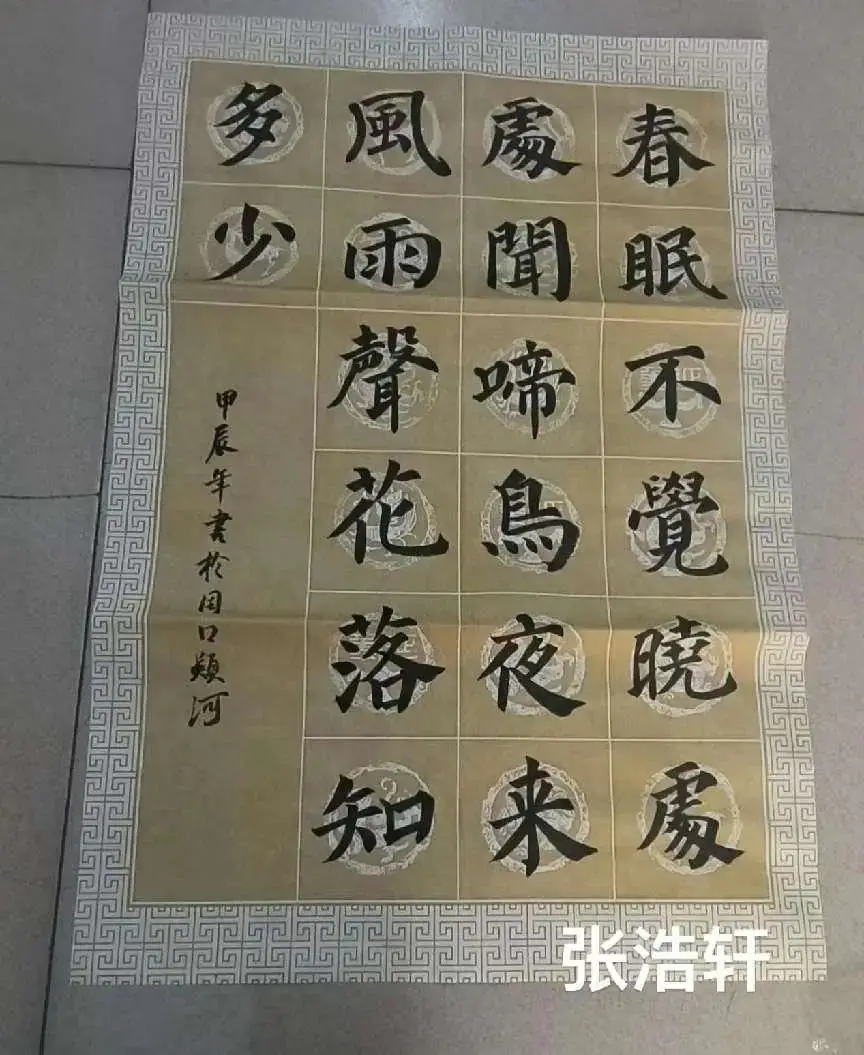 春眠不覺曉處
處聞啼鳥夜来
風雨聲花落知
多少
甲辰年書於周口颍河
张浩轩